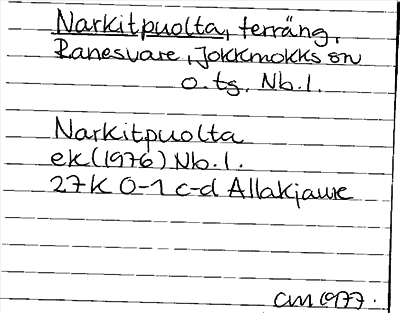 Narkitpuolta, terräng,
Ranesvare, Jokkmokks sn
o. tg, Nb. l.
Narkitpuolta
ek (1976) Nb. l.
27K 0-1 c-d Allakjaure
CM 1977.